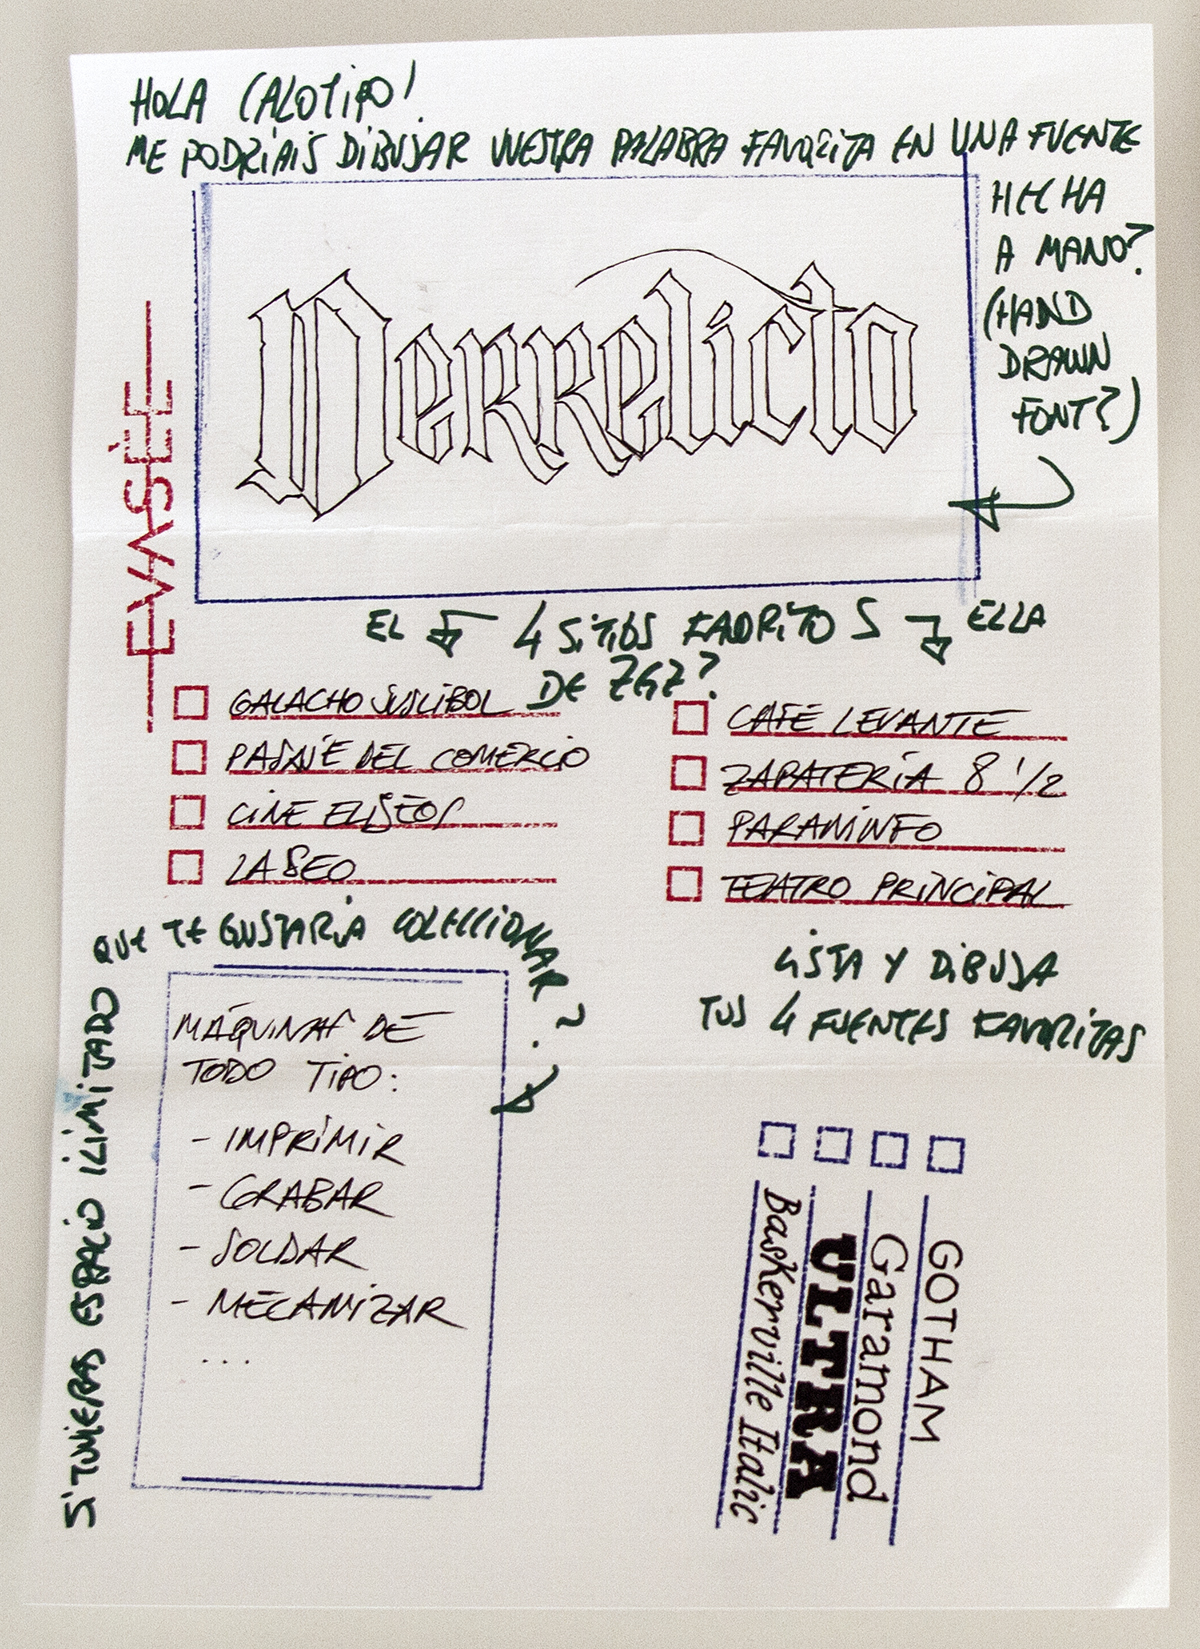 HOLA CALOTIPO!
ME PODRIAIS DIBUJAR VUESTRA PALABRA FAVORITA EN UNA FUENTE
HECHA
A MANO?
(HAND
DRAWN
FONT?)
Derrelicto
EVASÈE
EL 4 SITIOS FAVORITOS ELLA
DE ZGZ?
GALACHO JUSLIBOL
PASAJE DEL COMERCIO
CINE ELISEOS
LA SEO
CAFÉ LEVANTE
ZAPATERÍA 8 1/2
PARANINFO
TEATRO PRINCIPAL
SI TUVIERAS ESPACIO ILIMITADO QUE TE GUSTARIA COLECCIONAR?
MÁQUINAS DE
TODO TIPO:
- IMPRIMIR
- GRABAR
- SOLDAR
- MECANIZAR
...
LISTA Y DIBUJA
TUS 4 FUENTES FAVORITAS
GOTHAM
Garamond
ULTRA
Baskerville Italic